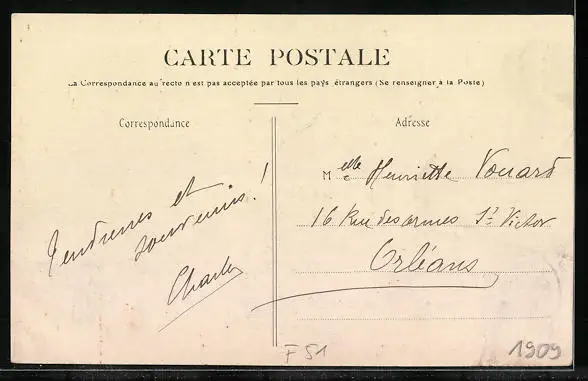 CARTE POSTALE
La Correspondance au recto n'est pas acceptée par tous les pays étrangers (Se renseigner à la Poste)
Correspondance
Adresse
Tendresses et
souvenirs!
Charles
Melle Henriette Vouard
16 Rue des ormes St Victor
Orléans
F 51
1909